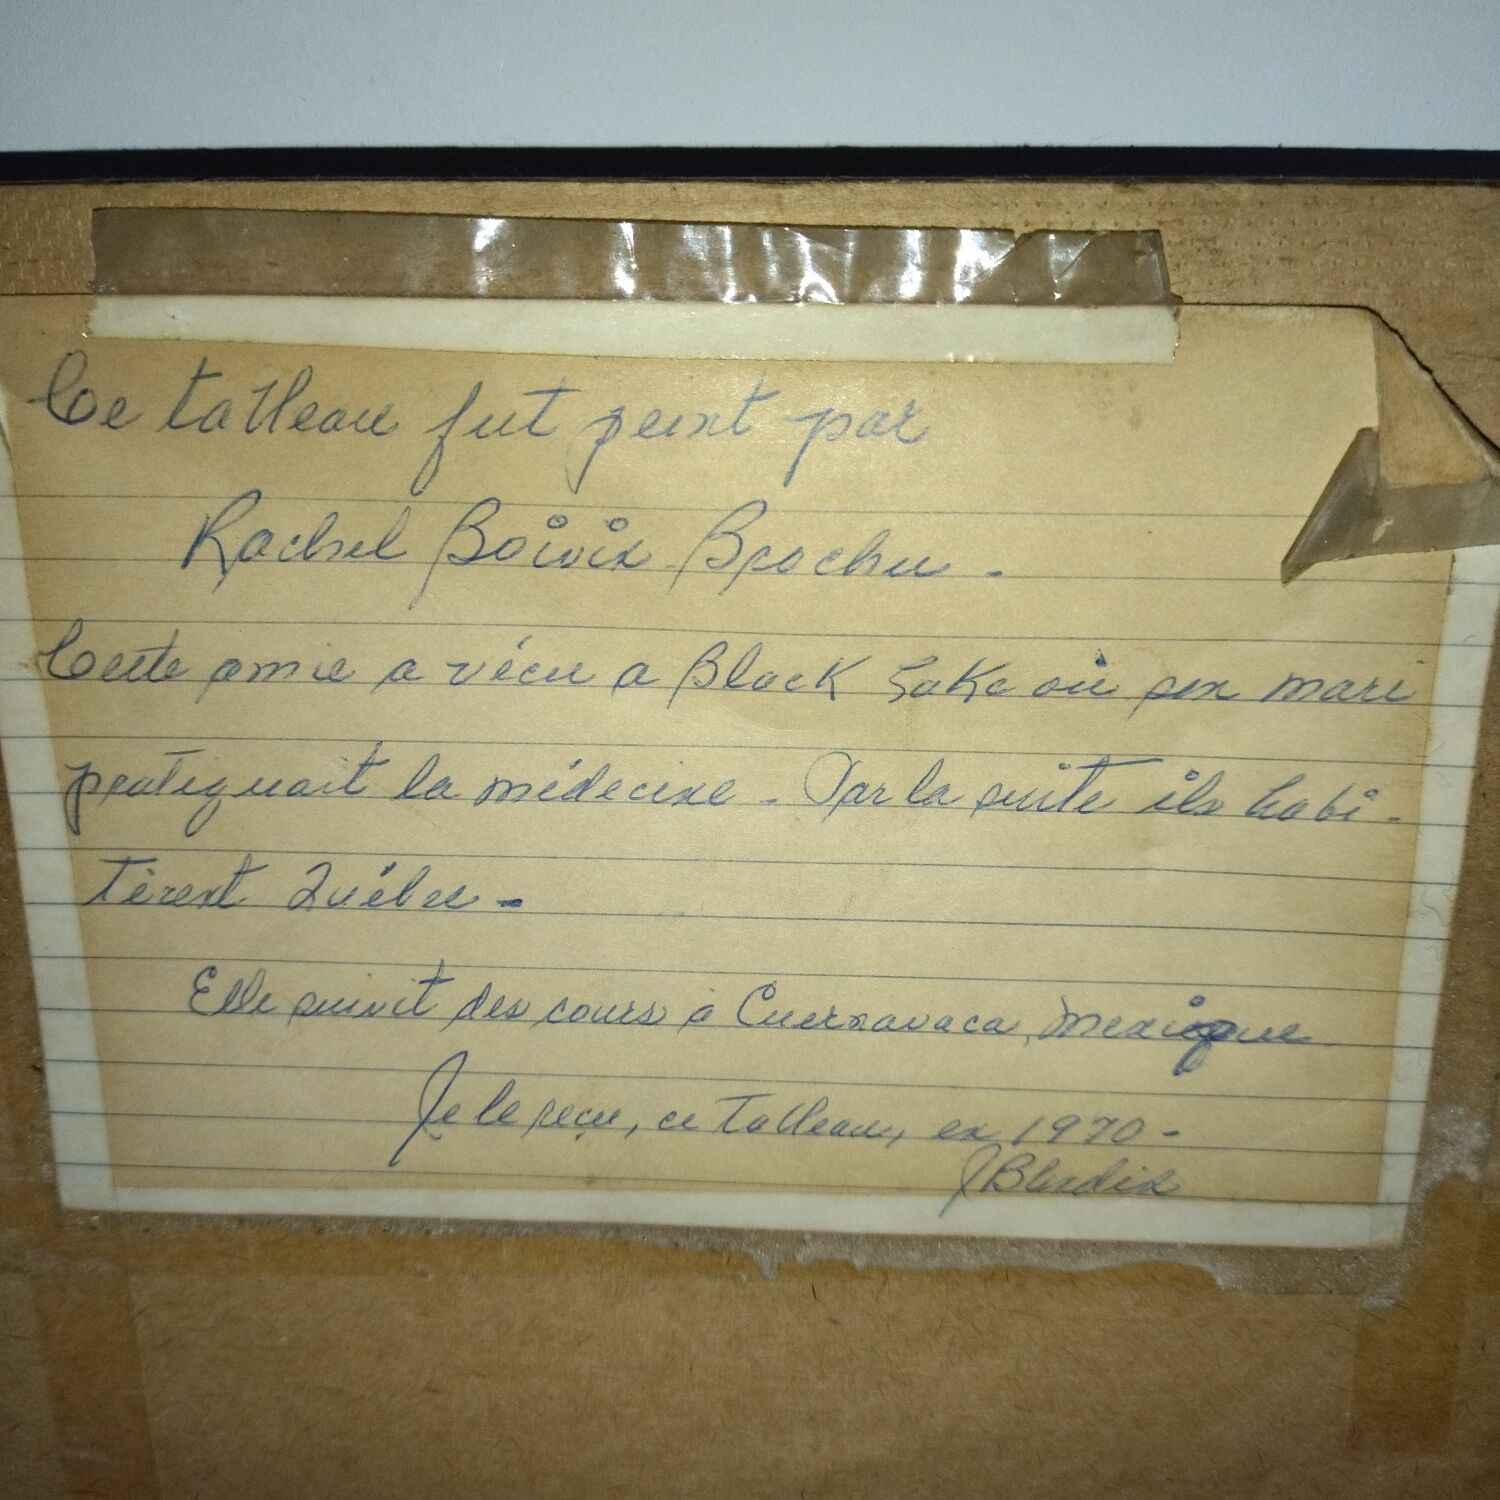 Ce tableau fut peint par
Rachel Boivin Brochu -
Cette amie a vécu a Black Lake où son mari
pratiquait la médecine - Par la suite ils habi-
tèrent Québec -
Elle suivit des cours à Cuernavaca, Mexique
Je le reçu, ce tableau, en 1970 -